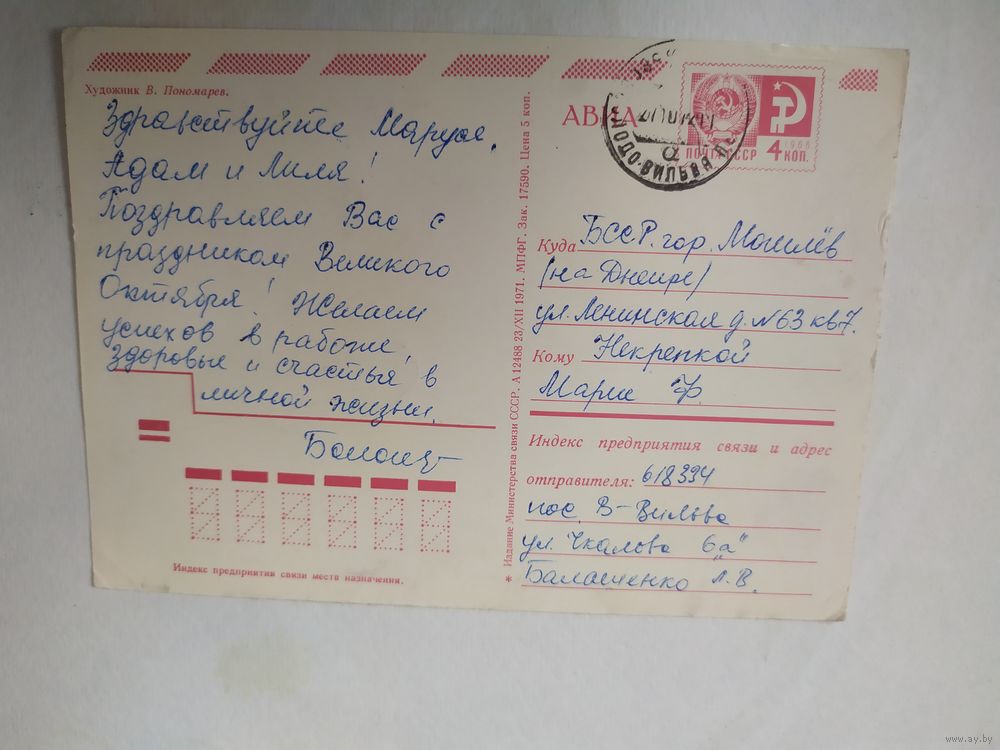 Художник В. Пономарев.
Здравствуйте Маруся,
Адам и Лиля!
Поздравляем Вас с
праздником Великого
Октября! Желаем
успехов в работе,
здоровья и счастья в
личной жизни.
Индекс предприятия связи места назначения.
* Издание Министерства связи СССР. А 12488 23/XII 1971. МПФГ. Зак. 17590. Цена 5 коп.
АВИА
ПОЧТА СССР
1966
4 КОП.
Куда БССР. гор. Могилёв
(на Днепре)
ул. Ленинская д. N63 кв 7.
Кому Некрепкой
Марие Ф.
Индекс предприятия связи и адрес
отправителя: 618394
пос. В-Вильва
ул. Чкалова 6"а"
Л. В.
www.ay.by